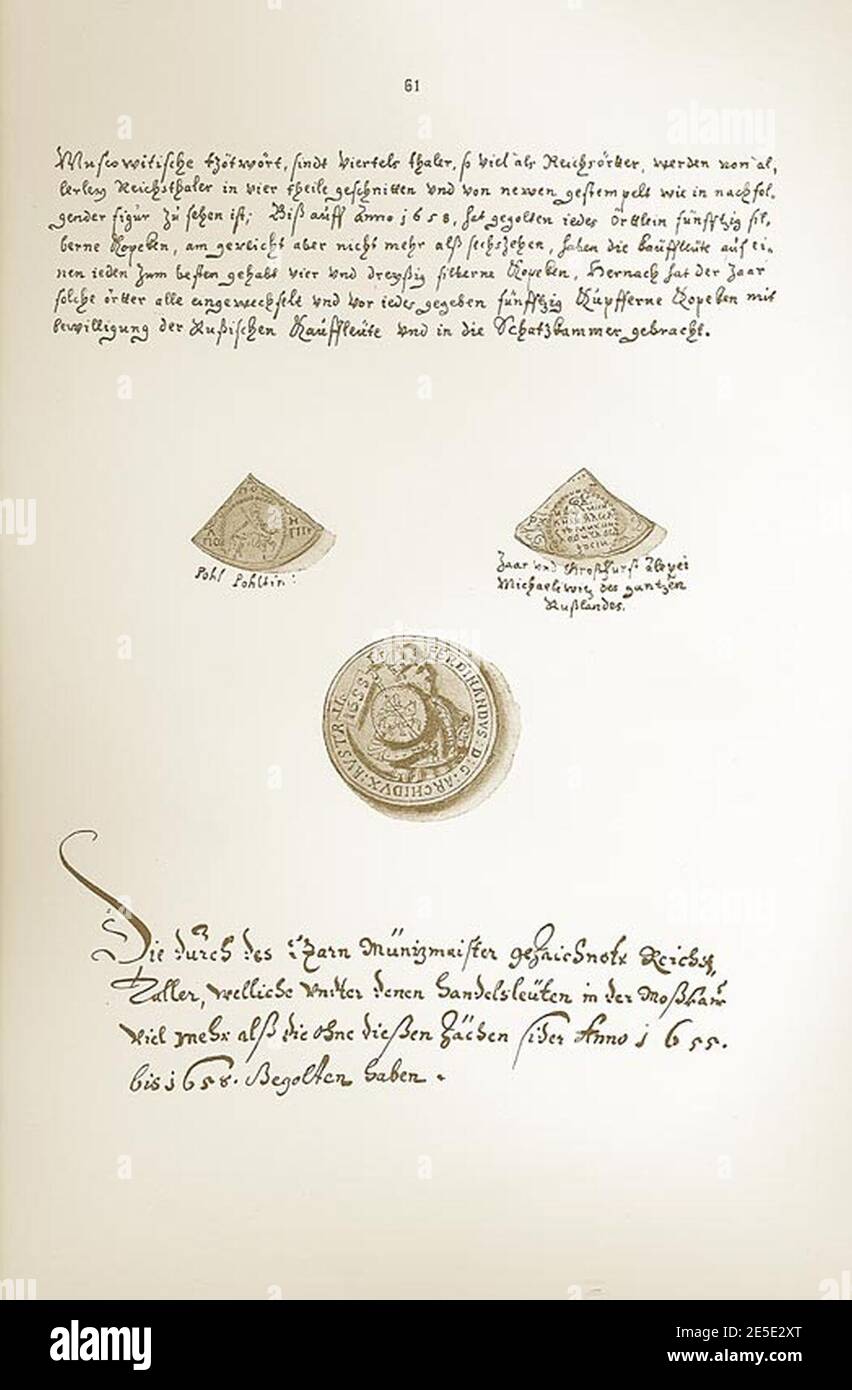 61
Muscowitische tzötwört, sindt Viertels thaler, so viel als Reichsörtter, werden von al,
lerley Reichsthaler in vier theile geschnitten und von newen gestempelt wie in nachfol,
gender figúr zú sehen ist; Biß aúff Anno 1658, hat gegolten iedes Örttlein fünfftzig sil,
berne Kopeken, am gewicht aber nicht mehr alß sechszehen, haben die kaúffleúte auf ei,
nen ieden zum besten gehabt vier und dreyßig silberne Kopeken, Hernach hat der Zaar
solche örtter alle eingewechselt und vor iedes gegeben fünfftzig Kupfferne Kopeken mit
bewilligung der Rußischen Kaúffleúte und in die Schatzkammer gebracht.
Pohl Poltin:
Zaar und Großfürst Alexei
Michaelewitz des gantzen
Rußlandes.
1655
FERDINANDVS: D: G: ARCHIDVX: AVSTR
Die dúrch des Zarn Müntzmaister gezaichnete Reichs,
Taller, welliche unter denen handelsleúten in der Moßkaw
viel mehr alß die ohne dießen Zächen sider Anno 1655.
bis 1658. Gegolten haben.
alamy
Image ID: 2E5E2XT
www.alamy.com